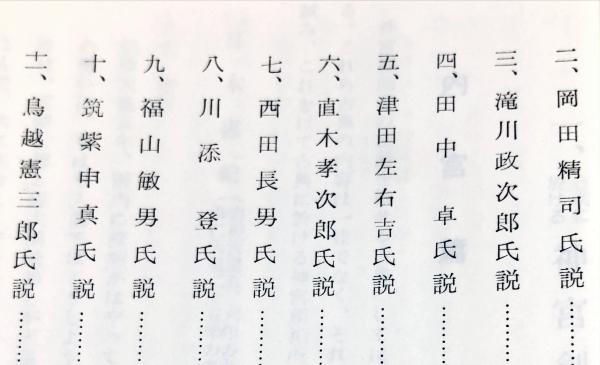 二、岡田精司氏説………
三、滝川政次郎氏説………
四、田中　卓氏説………
五、津田左右吉氏説………
六、直木孝次郎氏説………
七、西田長男氏説………
八、川添　登氏説………
九、福山敏男氏説………
十、筑紫申真氏説………
十一、鳥越憲三郎氏説………